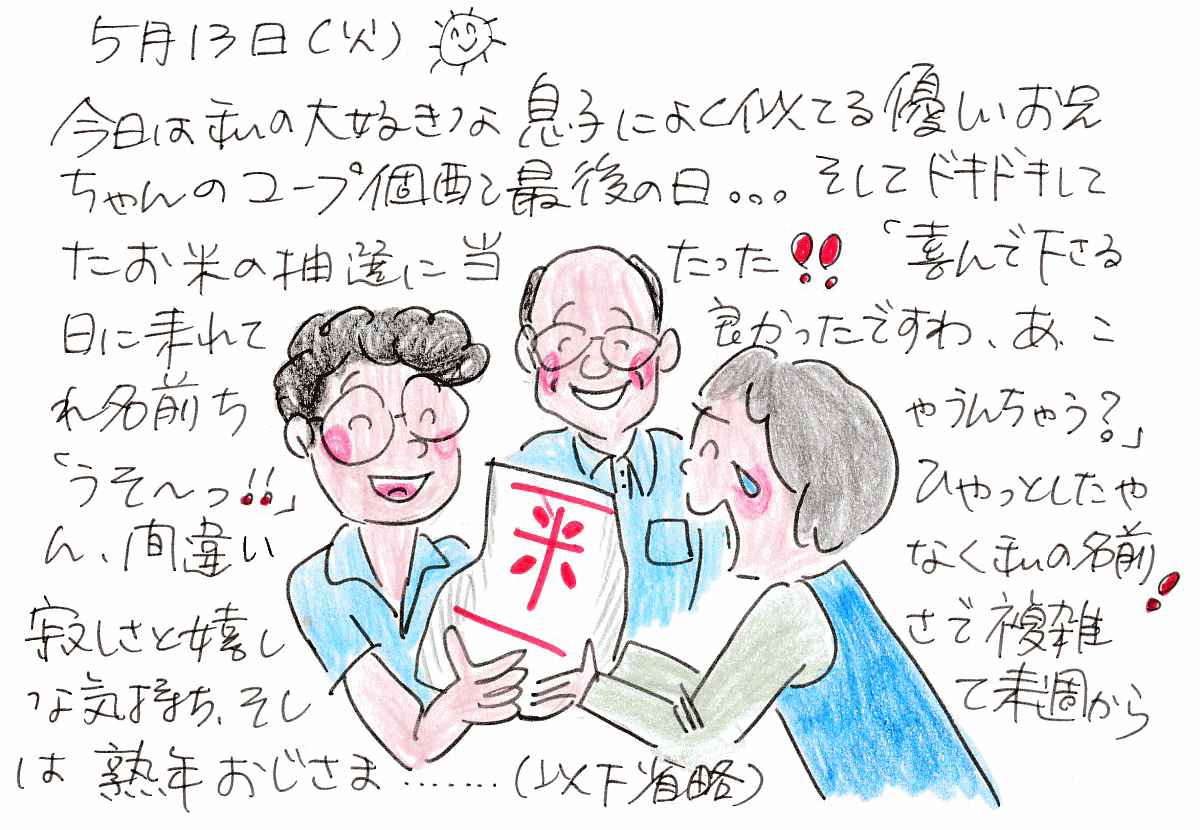 5月13日(火)
今日は私の大好きな息子によく似てる優しいお兄
ちゃんのコープ個配と最後の日。。。そしてドキドキして
たお米の抽選に当たった!!「喜んで下さる
日に来れて良かったですわ、あ、こ
れ名前ちゃうんちゃう?」
「うそ〜っ!!」ひやっとしたや
ん、間違いなく私の名前!
寂しさと嬉しさで複雑
な気持ち、そして来週から
は熟年おじさま........(以下省略)
米